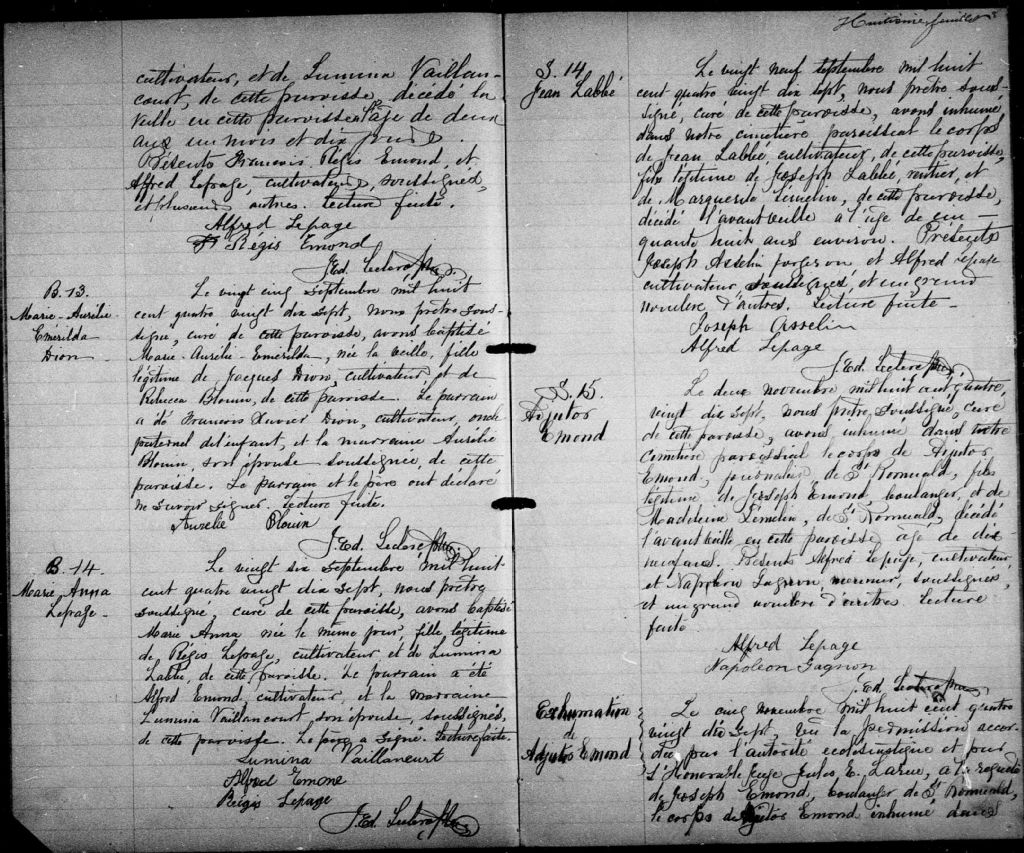 cultivateur, et de Lumina Vaillan-
court, de cette paroisse, décédé la
veille en cette paroisse à l'âge de deux
ans un mois et dix jours.
Présents Francois Régis Emond, et
Alfred Lepage, cultivateurs, soussignés,
et plusieurs autres. Lecture faite.
Alfred Lepage
Régis Emond
J. Ed. Leclerc Ptre.
B. 13.
Marie-Aurélie
Emérilda
Dion
Le vingt cinq septembre mil huit
cent quatre vingt dix sept, nous prêtre sous-
signé, curé de cette paroisse, avons baptisé
Marie-Aurélie-Emerilda, née la veille, fille
légitime de Jacques Dion, cultivateur, et de
Rebecca Blouin, de cette paroisse. Le parrain
a été Francois Xavier Dion, cultivateur, oncle
paternel de l'enfant, et la marraine Aurélie
Blouin, son épouse soussignée, de cette
paroisse. Le parrain et le père ont déclaré
ne savoir signer. Lecture faite.
Aurelie Blouin
J. Ed. Leclerc Ptre.
B. 14.
Marie, Anna
Lepage.
Le vingt six septembre mil huit
cent quatre vingt dix sept, nous prêtre
soussigné, curé de cette paroisse, avons baptisé
Marie Anna née le même jour, fille légitime
de Régis Lepage, cultivateur et de Lumina
Labbé, de cette paroisse. Le parrain a été
Alfred Emond cultivateur, et la marraine
Lumina Vaillancourt, son épouse, soussignés,
de cette paroisse. Le père a signé. Lecture faite.
Lumina Vaillancourt
Alfred Emone
Régis Lepage
J. Ed. Leclerc Ptre.
Huitième feuillet
S. 14
Jean Labbé
Le vingt neuf septembre mil huit
cent quatre vingt dix sept, nous prêtre sous-
signé, curé de cette paroisse, avons inhumé
dans notre cimetière paroissial le corps
de Jean Labbé, cultivateur, de cette paroisse,
fils légitime de Joseph Labbé, rentier, et
de Marguerite Lémelin, de cette paroisse,
décédé l'avant veille a l'âge de cin-
quante huit ans environ. Présents
Joseph Asselin forgeron et Alfred Lepage
cultivateur soussignés, et un grand
nombre d'autres. Lecture faite-
Joseph Asselin
Alfred Lepage
J. Ed. Leclerc Ptre.
S. 15.
Adjutor
Emond
Le deux novembre mil huit cent quatre
vingt dix sept. nous prêtre, soussigné, curé
de cette paroisse, avons inhumé dans notre
cimetière paroissial le corps de Adjutor
Emond, journalier de St Romuald, fils
légitime de Joseph Emond, boulanger, et de
Madeleine Lémelin, de St Romuald, décédé
l'avant veille en cette paroisse âgé de dix
neuf ans. Présents Alfred Lepage, cultivateur,
et Napoléon Gagnon soussignés,
et un grand nombre d'autres. Lecture
faite.
Alfred Lepage
Napoleon Gagnon
J. Ed. Leclerc Ptre.
Exhumation
de
Adjutor Emond
Le cinq novembre mil huit cent quatre
vingt dix sept, vu la permission accor-
dée par l'autorité ecclésiastique et par
L'Honorable Juge Jules E. Larue, a la requête
de Joseph Emond, boulanger de St Romuald,
le corps de Adjutor Emond inhumé dans